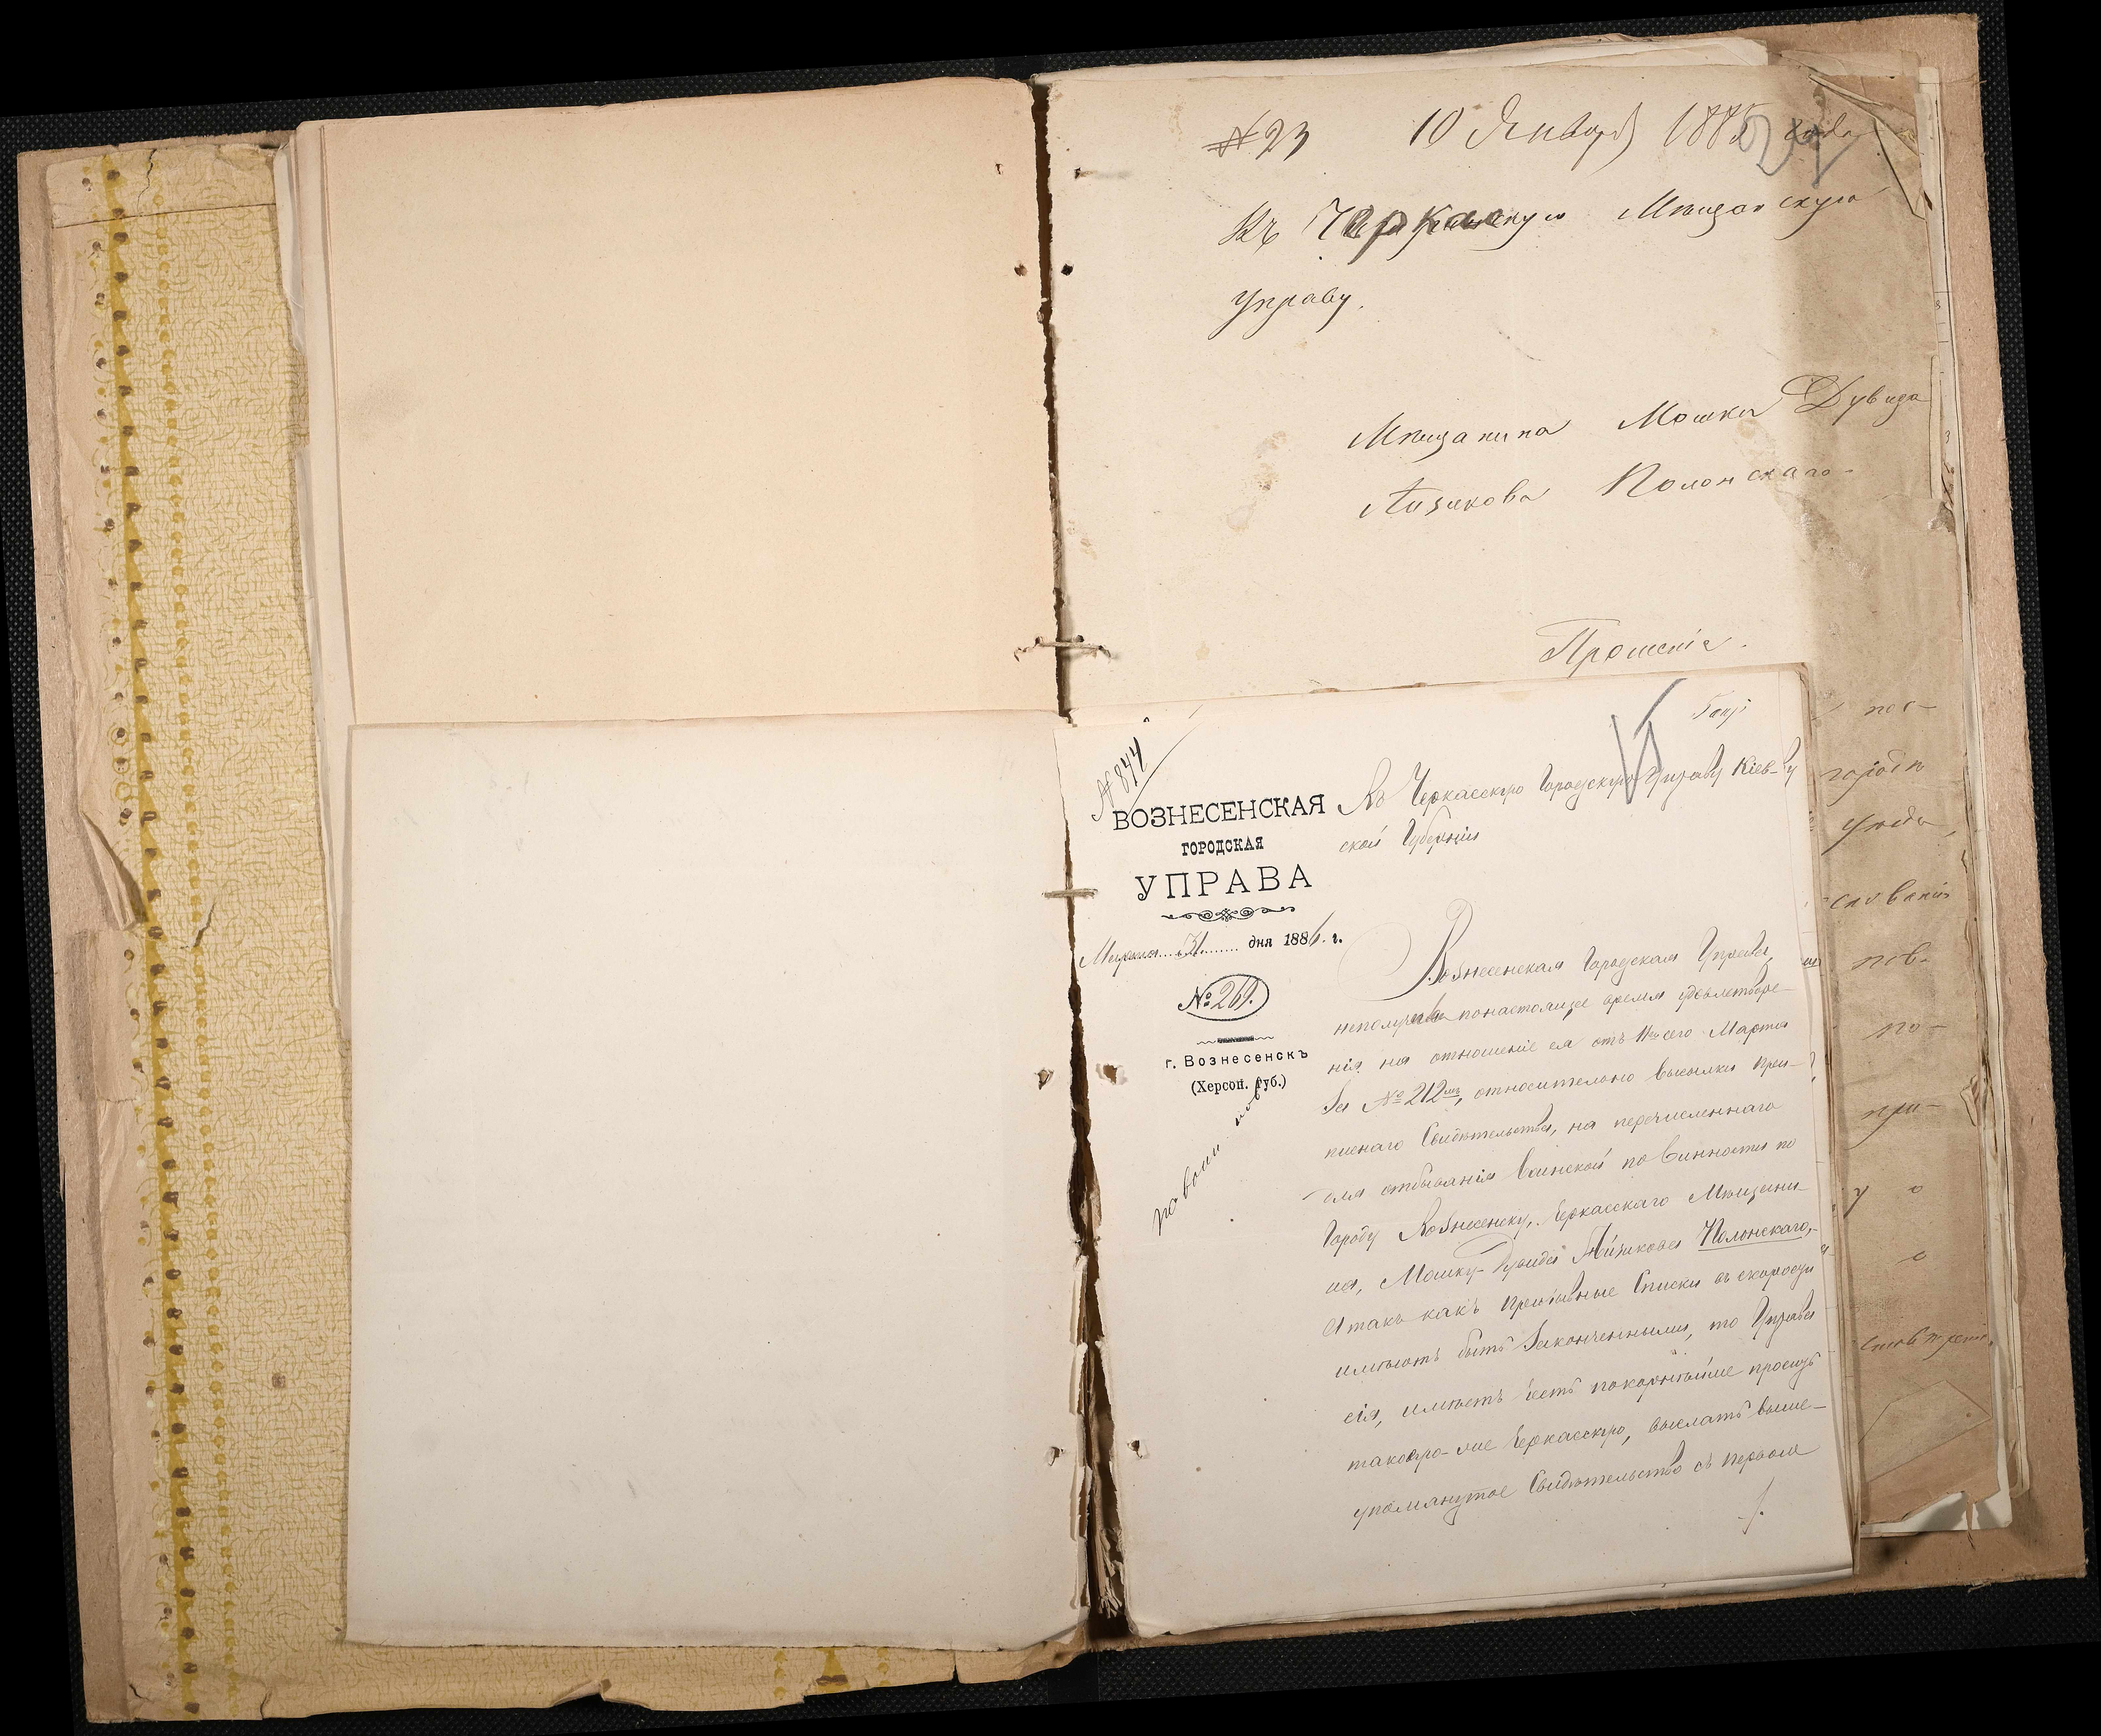 № 23 10 Января 1885 года
Въ Черкаскую Мѣщанскую
Управу.
Мѣщанина Мошки Дувида
Айзикова Полонскаго
Прошеніе.
№ 844
ВОЗНЕСЕНСКАЯ
ГОРОДСКАЯ
УПРАВА
Марта 31 дня 1886 г.
№ 269.
г. Вознесенскъ
(Херсон. губ.)
Въ Черкасскую Городскую Управу Кіев-
ской Губерніи
Вознесенская Городская Управа,
неполучивъ понастоящее время удовлетворе-
нія на отношеніе ея отъ 11го сего Марта
за № 212мъ, относительно высылки При-
писнаго Свидѣтельства, на перечисленнаго
для отбыванія воинской повинности по
Городу Вознесенску, Черкасскаго Мѣщани-
на, Мошку-Дувида Айзикова Полонскаго,
А такъ какъ Призывные Списки въ скорости
имѣютъ быть законченными, то Управа
сія, имѣетъ честь покорнѣйше просить
таковую-же Черкасскую, выслать выше-
упомянутое Свидѣтельство съ первою
пос-
городѣ
по-
при-
у о
о